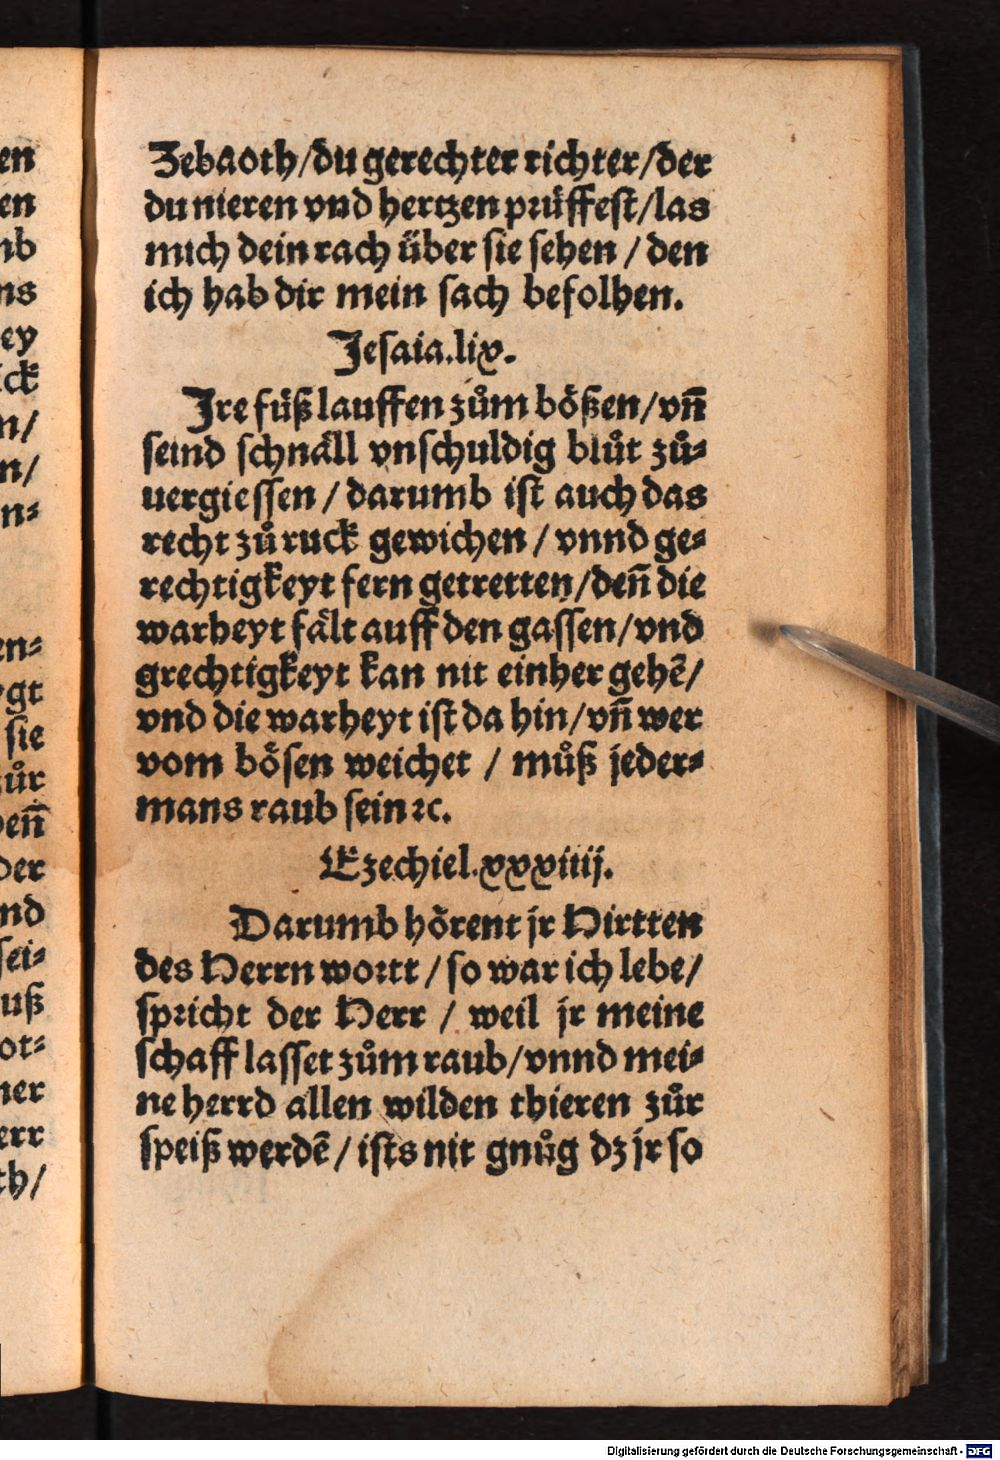 en
en
mb
ns
ey
ick
n/
n/
n⸗
en⸗
ygt
sie
zůr
denn̄
der
nd
sei⸗
uß
ot⸗
ner
err
th/
Zebaoth/du gerechter richter/der
du nieren vnd hertzen pꝛüffest/las
mich dein rach über sie sehen / den
ich hab dir mein sach befolhen.
Jesaia.lix.
Jre füß lauffen zům bößen/vn̄
seind schnäll vnschuldig blůt zů⸗
uergiessen / darumb ist auch das
recht zů ruck gewichen / vnnd ge⸗
rechtigkeyt fern getretten/den̄ die
warheyt fält auff den gassen/vnd
grechtigkeyt kan nit einher gehẽ/
vnd die warheyt ist da hin/vn̄ wer
vom bösen weichet / můß jeder⸗
mans raub sein ꝛc.
Ezechiel.xxxiiij.
Darumb hörent jr Hirtten
des Herrn woꝛtt / so war ich lebe/
spꝛicht der Herr / weil jr meine
schaff lasset zům raub/vnnd mei⸗
ne herrd allen wilden thieren zůr
speiß werdẽ / ists nit gnůg dz jr so
Digitalisierung gefördert durch die Deutsche Forschungsgemeinschaft - DFG